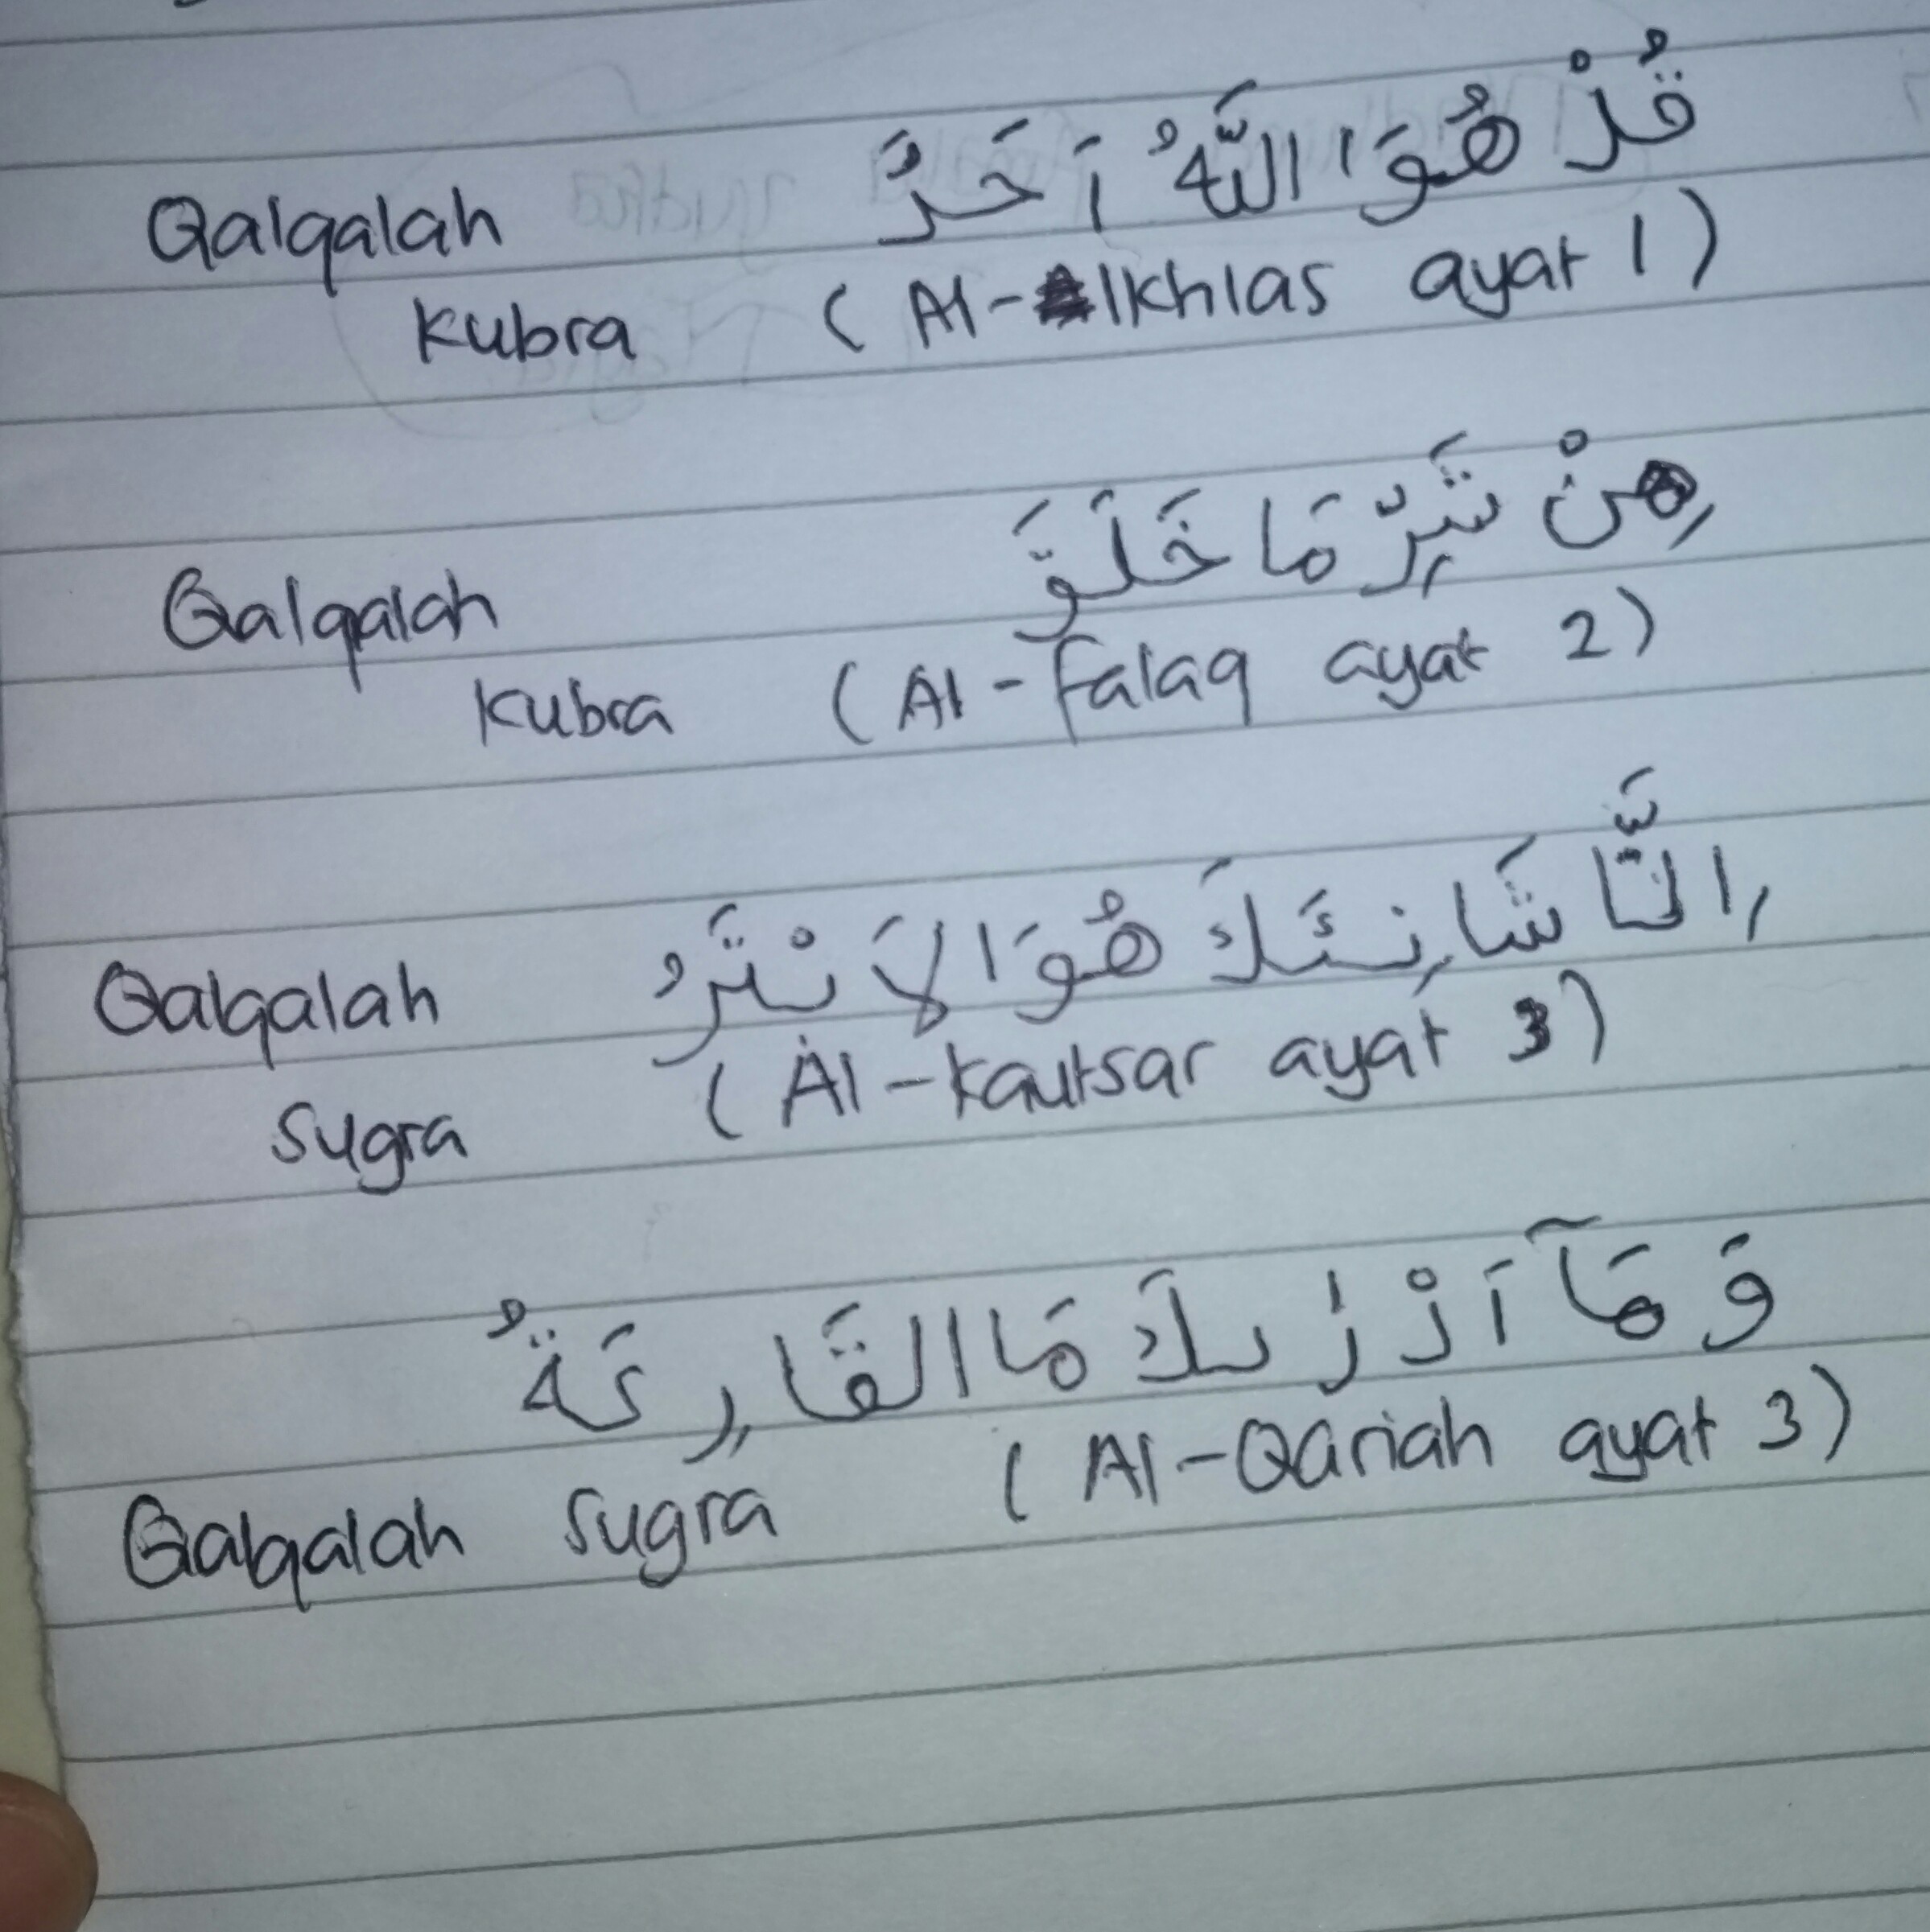 قُلْ هُوَ اللّٰهُ اَحَدٌ
Qalqalah
Kubra ( Al-Ikhlas ayat 1 )
مِنْ شَرِّ مَا خَلَقَ
Qalqalah
Kubra ( Al - falaq ayat 2 )
اِنَّ شَانِئَكَ هُوَ الْاَبْتَرُ
Qalqalah
Sugra ( Al - Kautsar ayat 3 )
وَمَآ اَدْرٰىكَ مَا الْقَارِعَةُ
( Al - Qariah ayat 3 )
Qalqalah Sugra